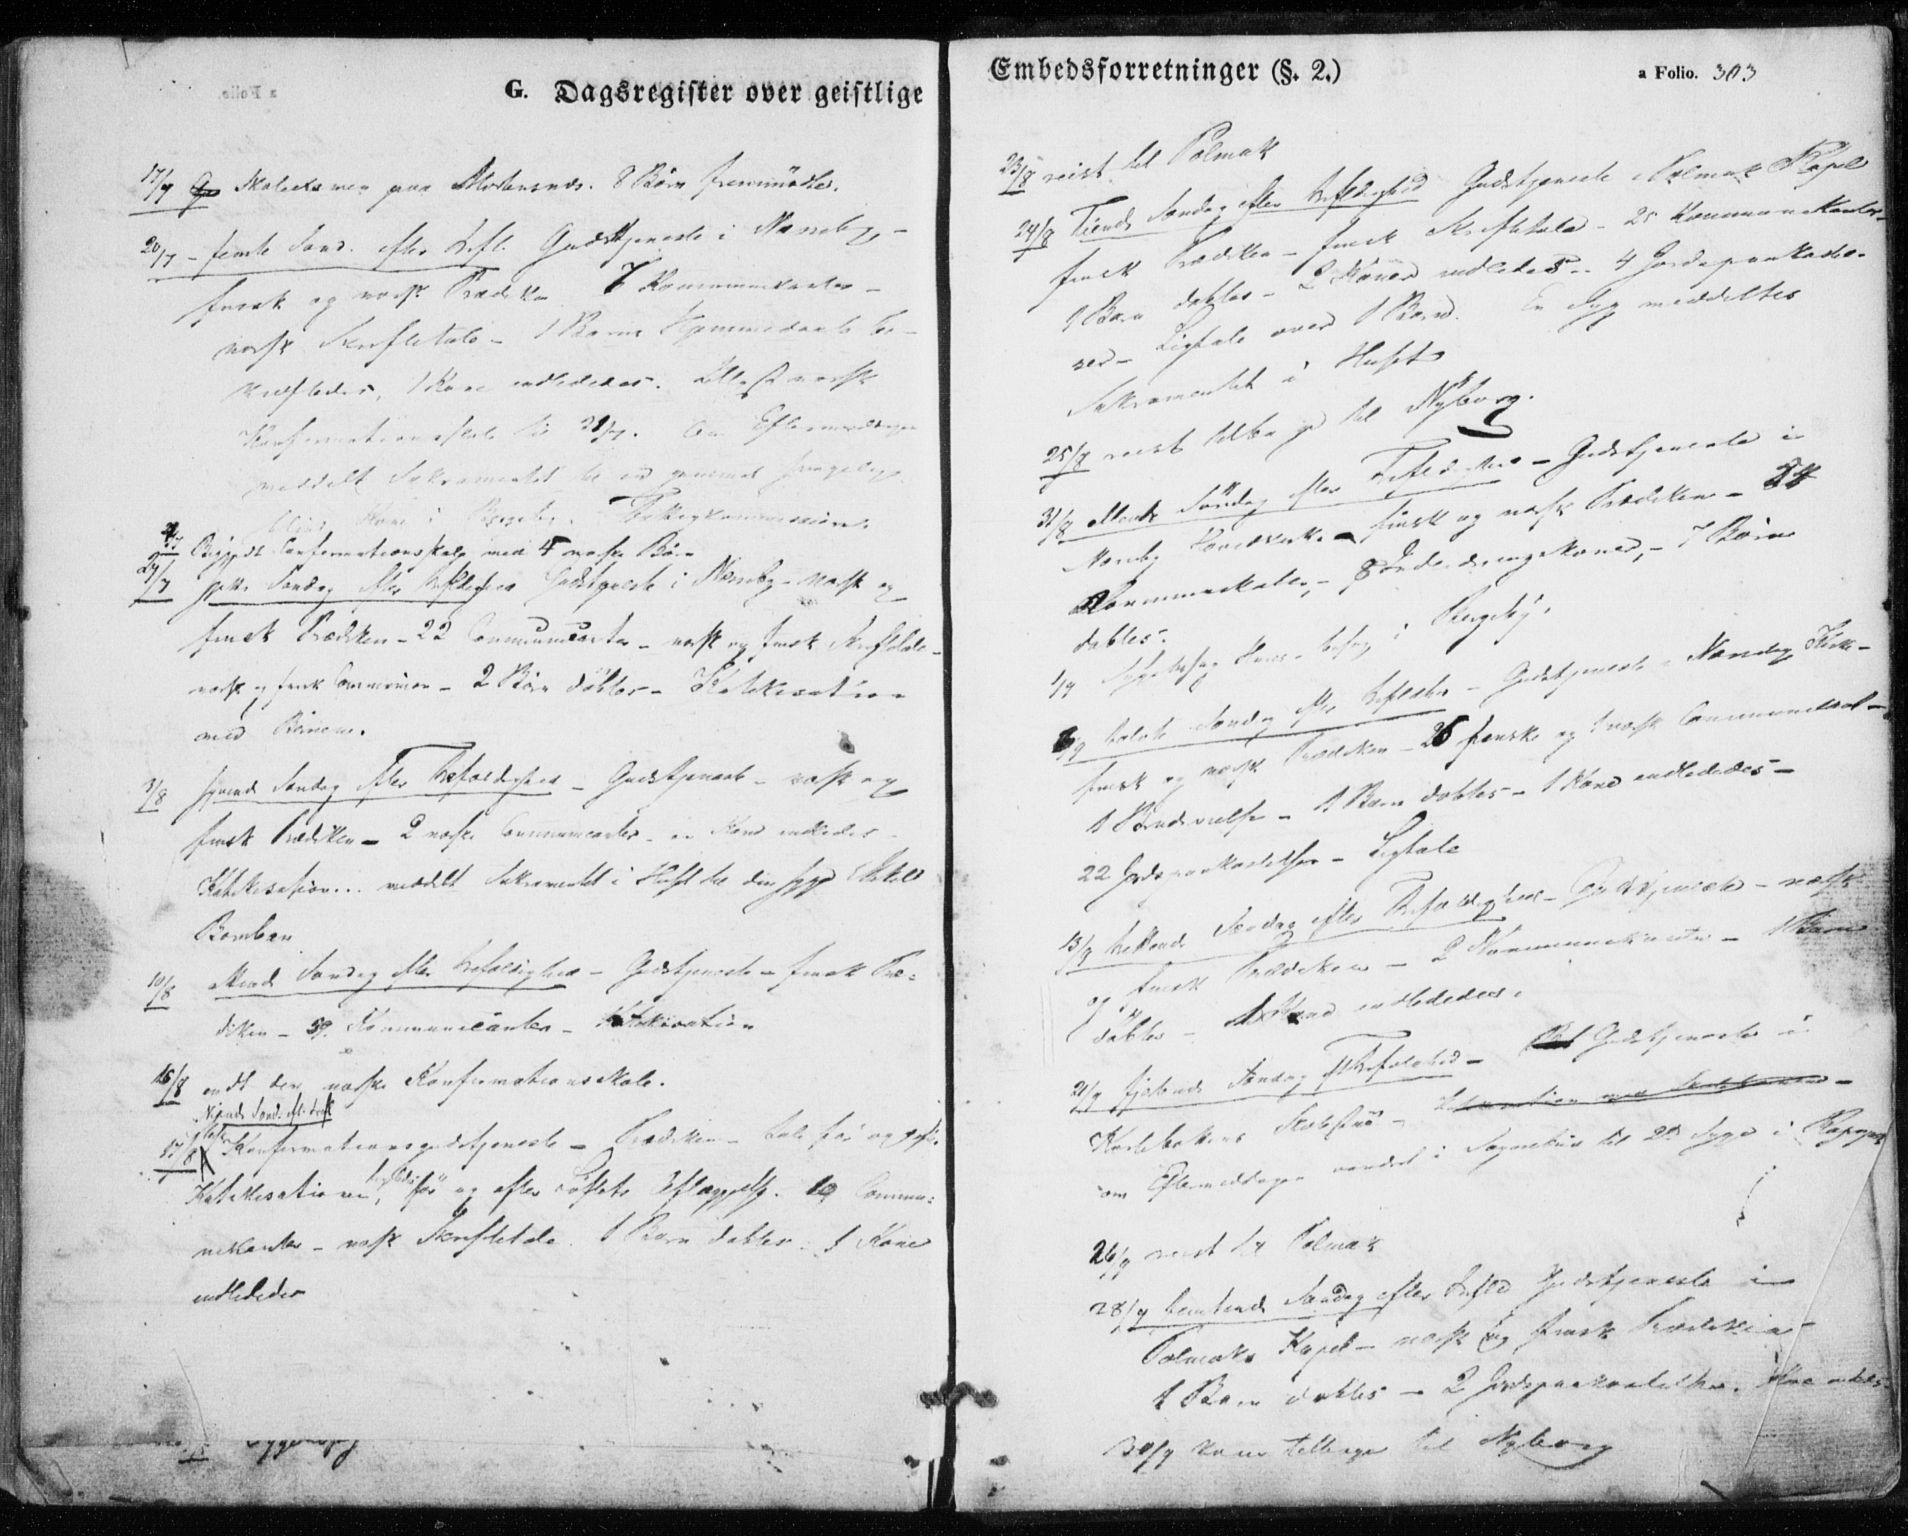 G. Dagsregister over geistlige
17/7 Skoleexamen paa Mortensnæs. 8 Børn fremmødte.
20/7 – femte Sønd. efter Trefl. Gudstjeneste i Næsseby –
finsk og norsk Prædiken 7 Kommunikanter –
norsk Skriftetale – 1 Barns Hjemmedaab be-
kræftedes, 1 Kone indlededes. norsk
Konfirmationsskole til 21/7. Om Eftermiddagen
meddelt Sakramentet til en gammel
blind Kone i Bergeby.
21/7 Begyndt Confirmationsskole med 4 norske Børn
27/7 sjette Søndag efter Trefoldighed Gudstjeneste i Næsseby – norsk og
finsk Prædiken – 22 Communicanter – norsk og finsk Skriftetale –
norsk og finsk Communion – 2 Børn døbtes – Katekisation
med Børnene.
3/8 syvende Søndag efter Trefoldighed – Gudstjeneste – norsk og
finsk Prædiken – 2 norske Communicanter – en Kone indledes –
Katekisation... meddelt Sakramentet i Huset til den syge
10/8 ottende Søndag efter Trefoldighed – Gudstjeneste – finsk Præ-
diken – 59 Kommunicanter – Katekisation
16/8 endt den norske Konfirmationsskole.
Niende Sønd. eft. Tref.
17/8 Konfirmationsgudstjeneste – Prædiken – Tale før og efter
Katekisationen, før og efter Løftets Aflæggelse. 19 Commu-
nikanter – norsk Skriftetale. 1 Barn døbtes. 1 Kone
indlededes
Embedsforretninger (§. 2.)
a Folio. 303
23/8 reist til Polmak
24/8 Tiende Søndag efter Trefoldighed Gudstjeneste i Polmak Kapel
finsk Prædiken – finsk Skriftetale – 25 Kommunikanter –
1 Barn døbtes – 2 Koner indledes – 4 Jordspaakastel-
ser – Ligtale over 1 Barn. En Syg meddeltes
Sakramentet i Huset
25/8 reist tilbage til Nyborg.
31/8 ellevte Søndag efter Trefoldighed – Gudstjeneste i
Næsseby Hovedkirke – finsk og norsk Prædiken – 24
Kommunikanter, – 8 Indledningskoner, – 7 Børn
døbtes.
1/9 Sygebesøg i Bergeby.
6/9 tolvte Søndag efter Trefoldhd – Gudstjeneste i Næsseby Kirke –
finsk og norsk Prædiken – 26 finske og 1 norsk Communikant –
1 Brudevielse – 1 Barn døbtes – 1 Kone indlededes –
22 Jordspaakastelser – Ligtale
13/9 trettende Søndag efter Trefoldighed – Gudstjeneste – norsk
og finsk Prædiken – 2 Kommunikanter – 1 Barn
døbtes – 1 Kone indlededes.
21/9 fjortende Søndag e/ Trefoldhed – Gudstjeneste i
Karlebotten Skolestue –
om Eftermiddagen vandret i Sognebud til 2de Syge i
26/9 reist til Polmak
28/9 femtende Søndag efter Trefld Gudstjeneste i
Polmak Kapel – norsk og finsk Prædiken –
1 Barn døbtes – 2 Jordspaakastelser.
30/9 kom tilbage til Nyborg